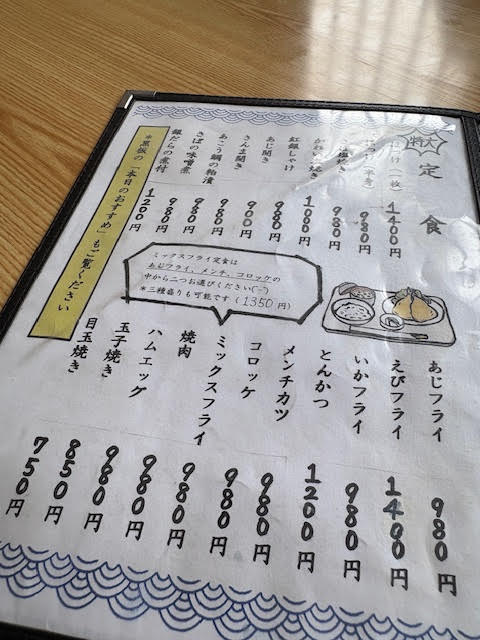 定食
特大
け（一枚） 1400円
け（半身） 980円
塩焼き 980円
かれい焼き 1000円
紅銀しゃけ 980円
あじ開き 900円
さんま開き 980円
あこう鯛の粕漬 980円
さばの味噌煮 980円
銀だらの煮付 1200円
＊黒板の「本日のおすすめ」もご覧ください
ミックスフライ定食は
あじフライ、メンチ、コロッケの
中から二つお選びください(^-^)
＊三種盛りも可能です（1350円）
あじフライ 980円
えびフライ 1400円
いかフライ 980円
とんかつ 1200円
メンチカツ 980円
コロッケ 980円
ミックスフライ 980円
焼肉 980円
ハムエッグ 980円
玉子焼き 850円
目玉焼き 750円